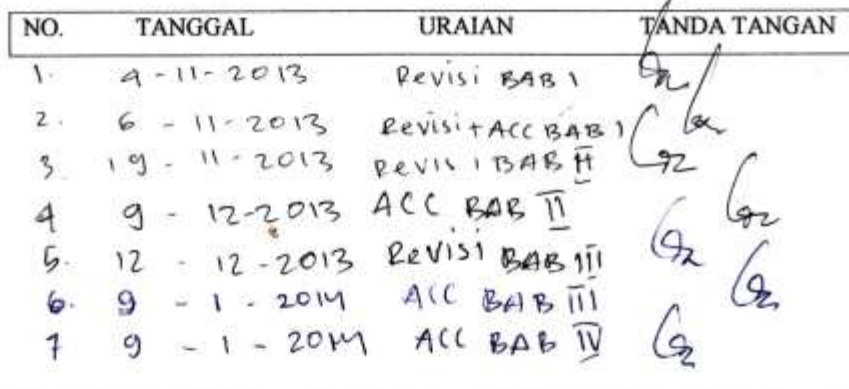 NO. TANGGAL URAIAN TANDA TANGAN
1. 4-11-2013 Revisi BAB 1
2. 6 - 11-2013 Revisi+ACC BAB 1
3. 19 - 11-2013 Revisi BAB II
4 9 - 12-2013 ACC BAB II
5. 12 - 12-2013 Revisi BAB III
6. 9 - 1 - 2014 ACC BAB III
7 9 - 1 - 2014 ACC BAB IV